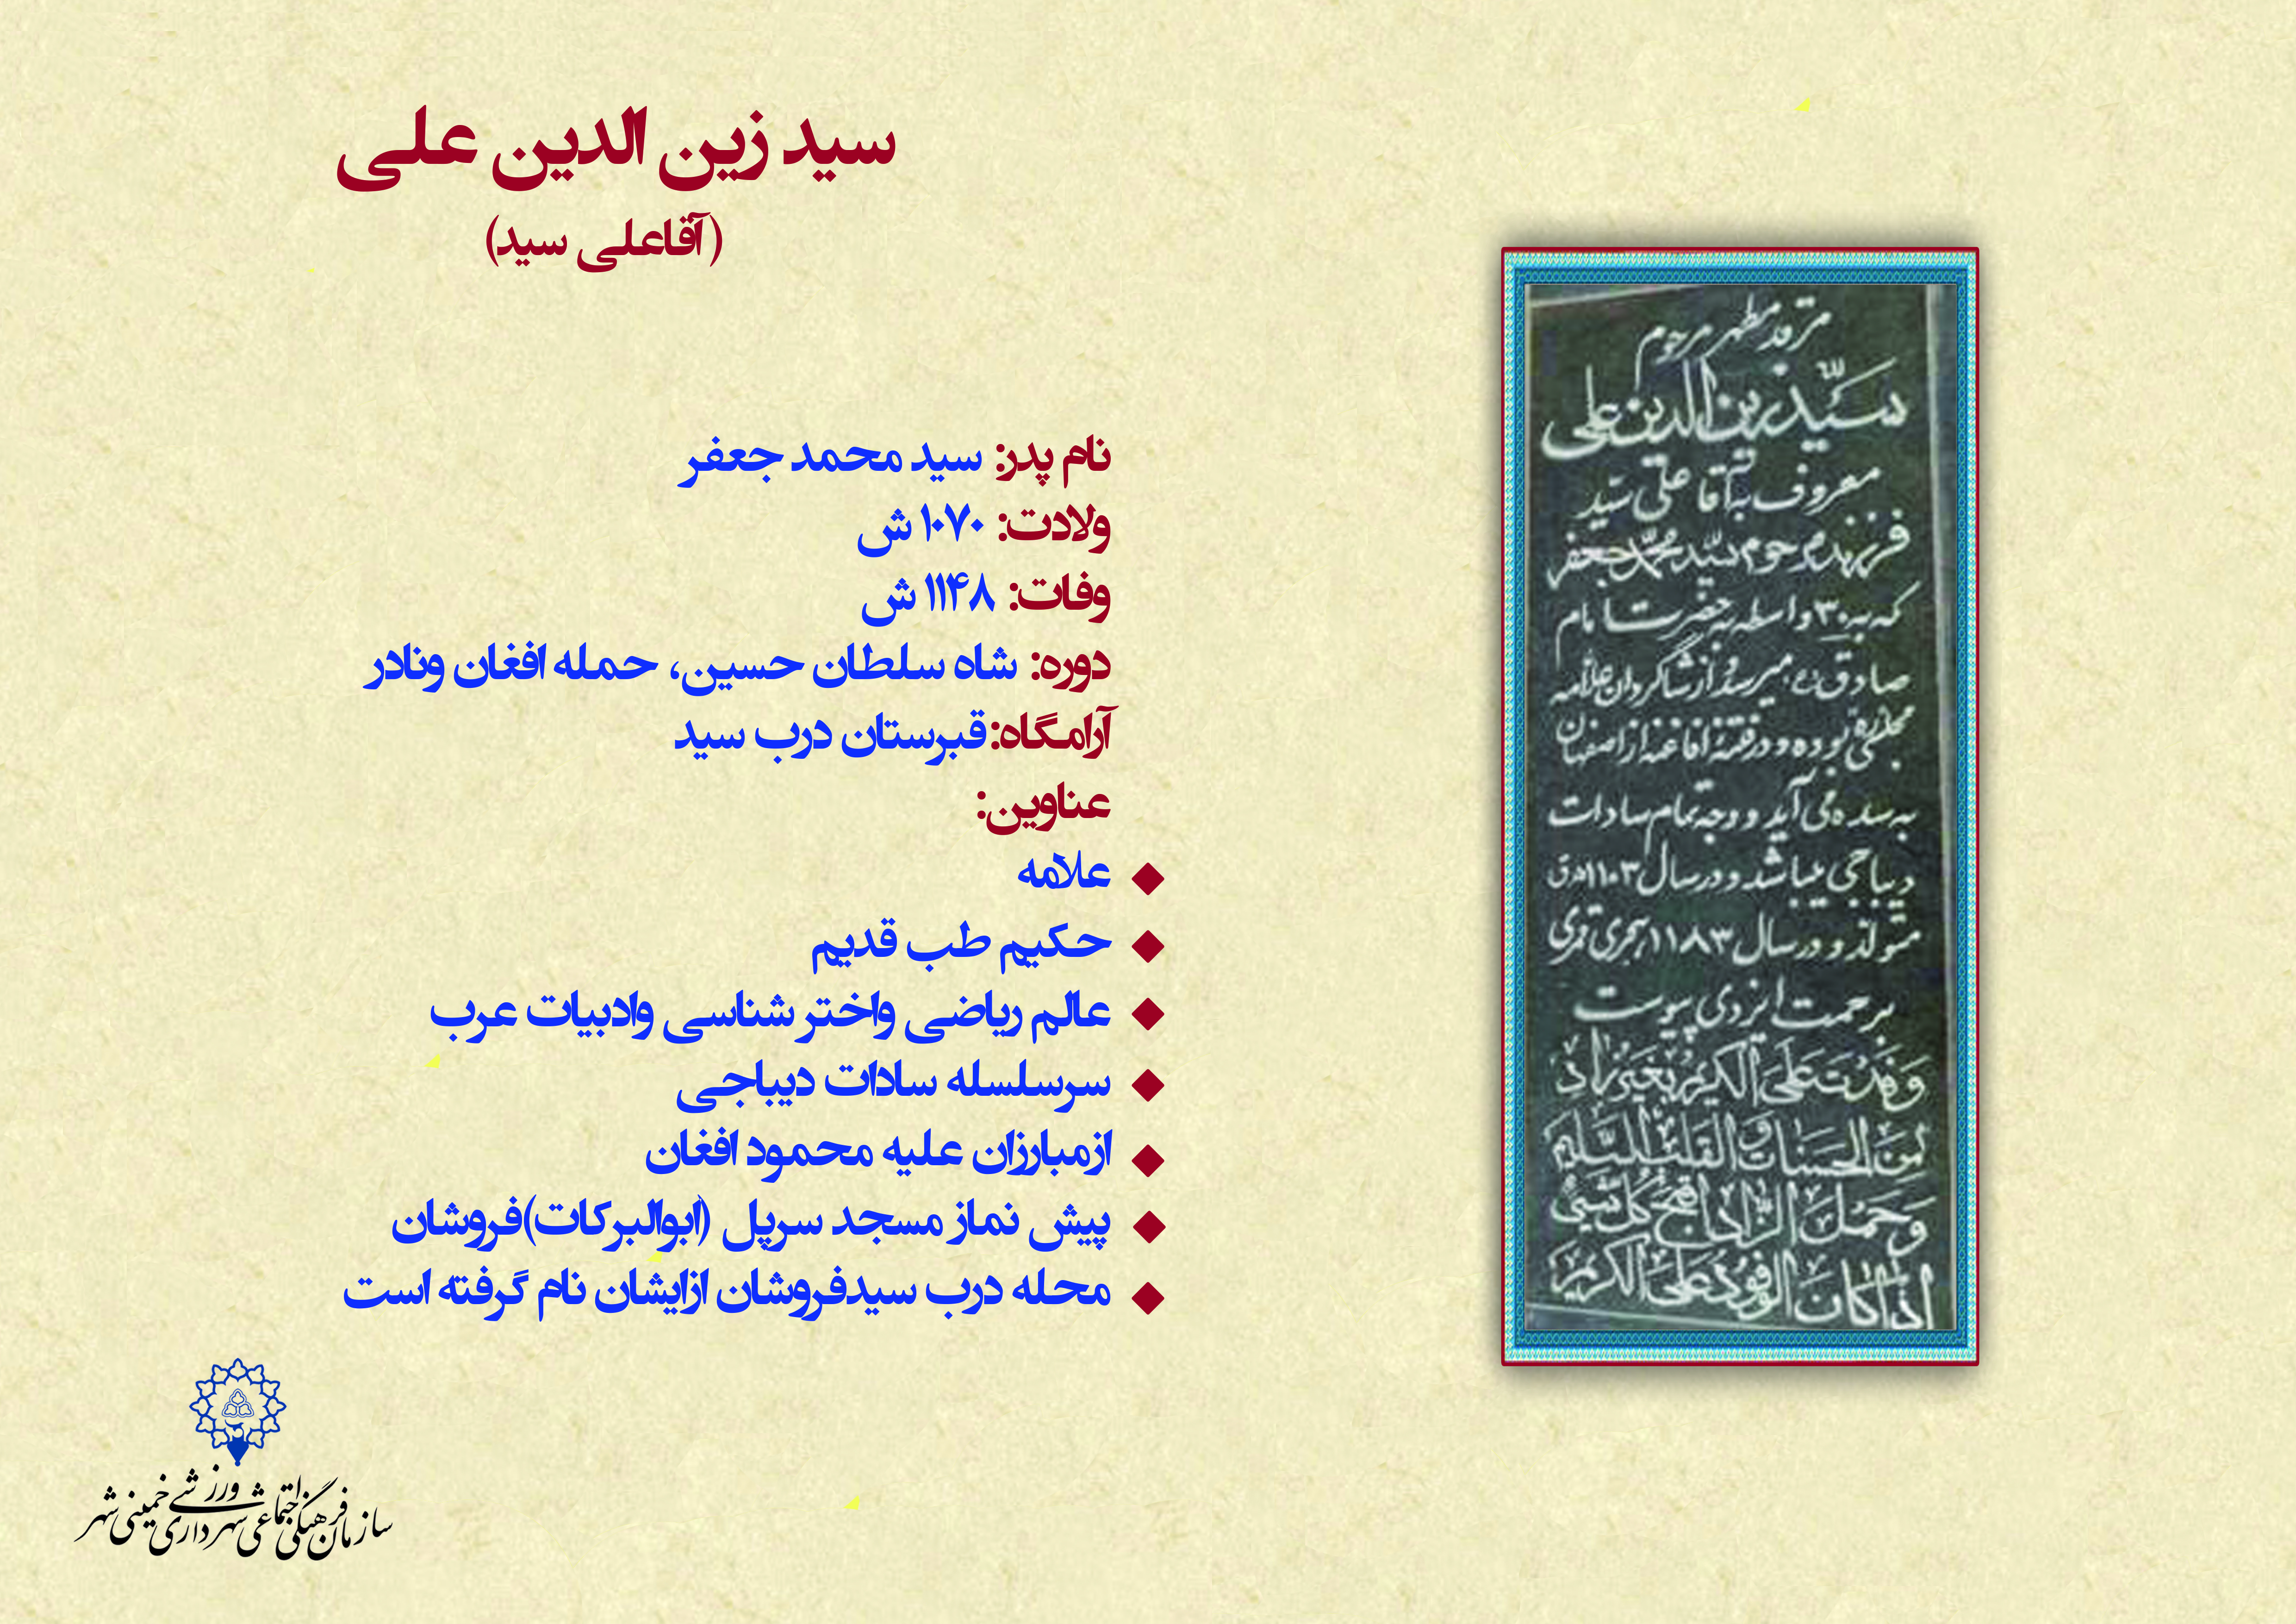 سید زین الدین علی
(آقاعلی سید)
نام پدر: سید محمد جعفر
ولادت: ۱۰۷۰ ش
وفات: ۱۱۴۸ ش
دوره: شاه سلطان حسین، حمله افغان ونادر
آرامگاه:قبرستان درب سید
عناوین:
علامه
حکیم طب قدیم
عالم ریاضی واختر شناسی وادبیات عرب
سرسلسله سادات دیباجی
ازمبارزان علیه محمود افغان
پیش نماز مسجد سرپل (ابوالبرکات)فروشان
محله درب سیدفروشان ازایشان نام گرفته است
مرقد مطهر مرحوم
سیّد زین الدین علی
معروف به آقا علی سیّد
فرزند مرحوم سیّد محمّد جعفر
که به ۳۰ واسطه به حضرت امام
صادق (ع) میرسد و از شاگردان علامه
مجلسی بوده و در فتنهٔ افاغنه از اصفهان
به سده می آید و وجه تمام سادات
دیباجی میباشد و در سال ۱۱۰۳ ه ق
متولّد و در سال ۱۱۸۳ هجری قمری
برحمت ایزدی پیوست
وَفَدْتُ عَلَی الْکَرِیمِ بِغَیْرِ زادٍ
مِنَ الْحَسَناتِ وَ الْقَلْبِ السَّلِیمِ
وَ حَمْلُ الزّادِ اَقْبَحُ کُلِّ شَیْءٍ
اِذا کانَ الْوُفُودُ عَلَی الْکَرِیمِ
سازمان فرهنگی اجتماعی ورزشی
شهرداری خمینی شهر